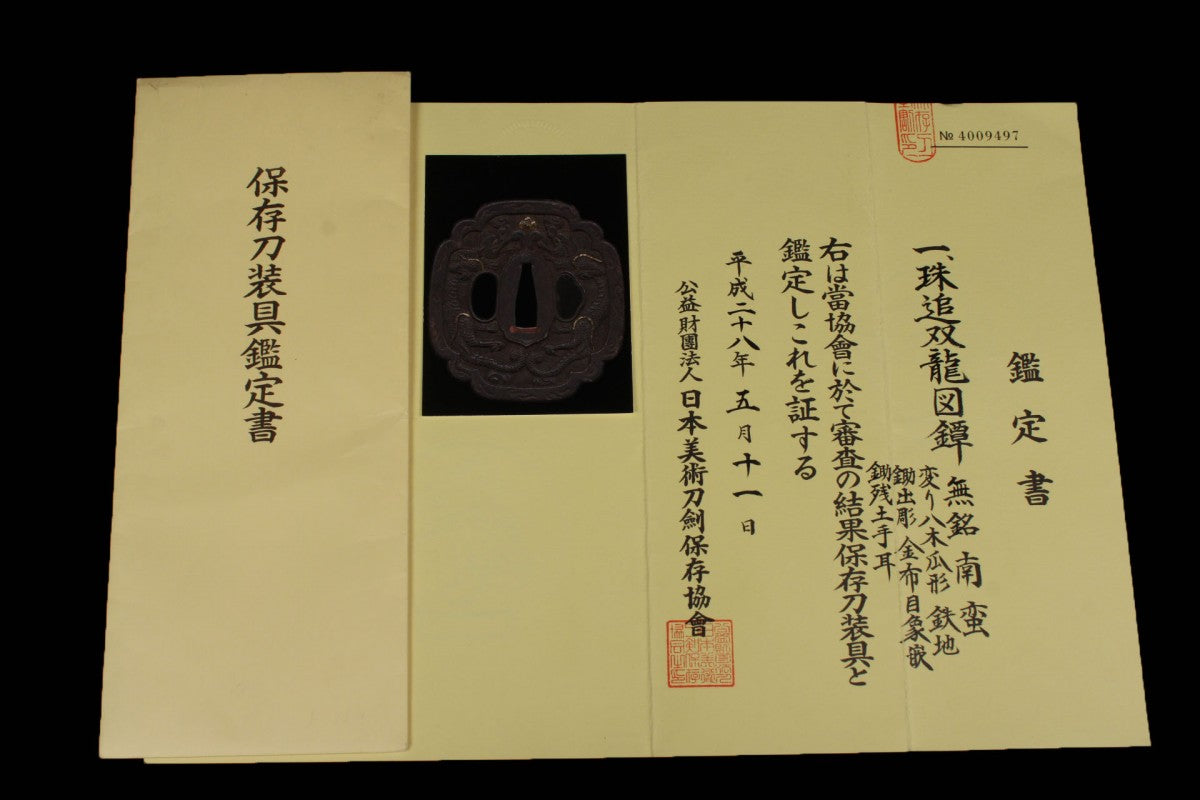 保存刀装具鑑定書
№ 4009497
鑑定書
一、珠追双龍図鐔 無銘 南蛮
変り八木瓜形 鉄地
鋤出彫 金布目象嵌
鋤残土手耳
右は當協會に於て審査の結果保存刀装具と
鑑定しこれを証する
平成二十八年五月十一日
公益財團法人日本美術刀劍保存協會